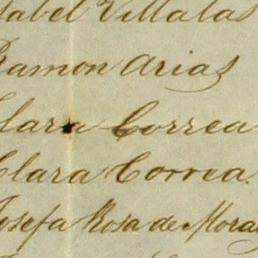 sabel Villalas
Ramon Arias
Clara Correa
Clara Correa.
Josefa Rosa de Mora